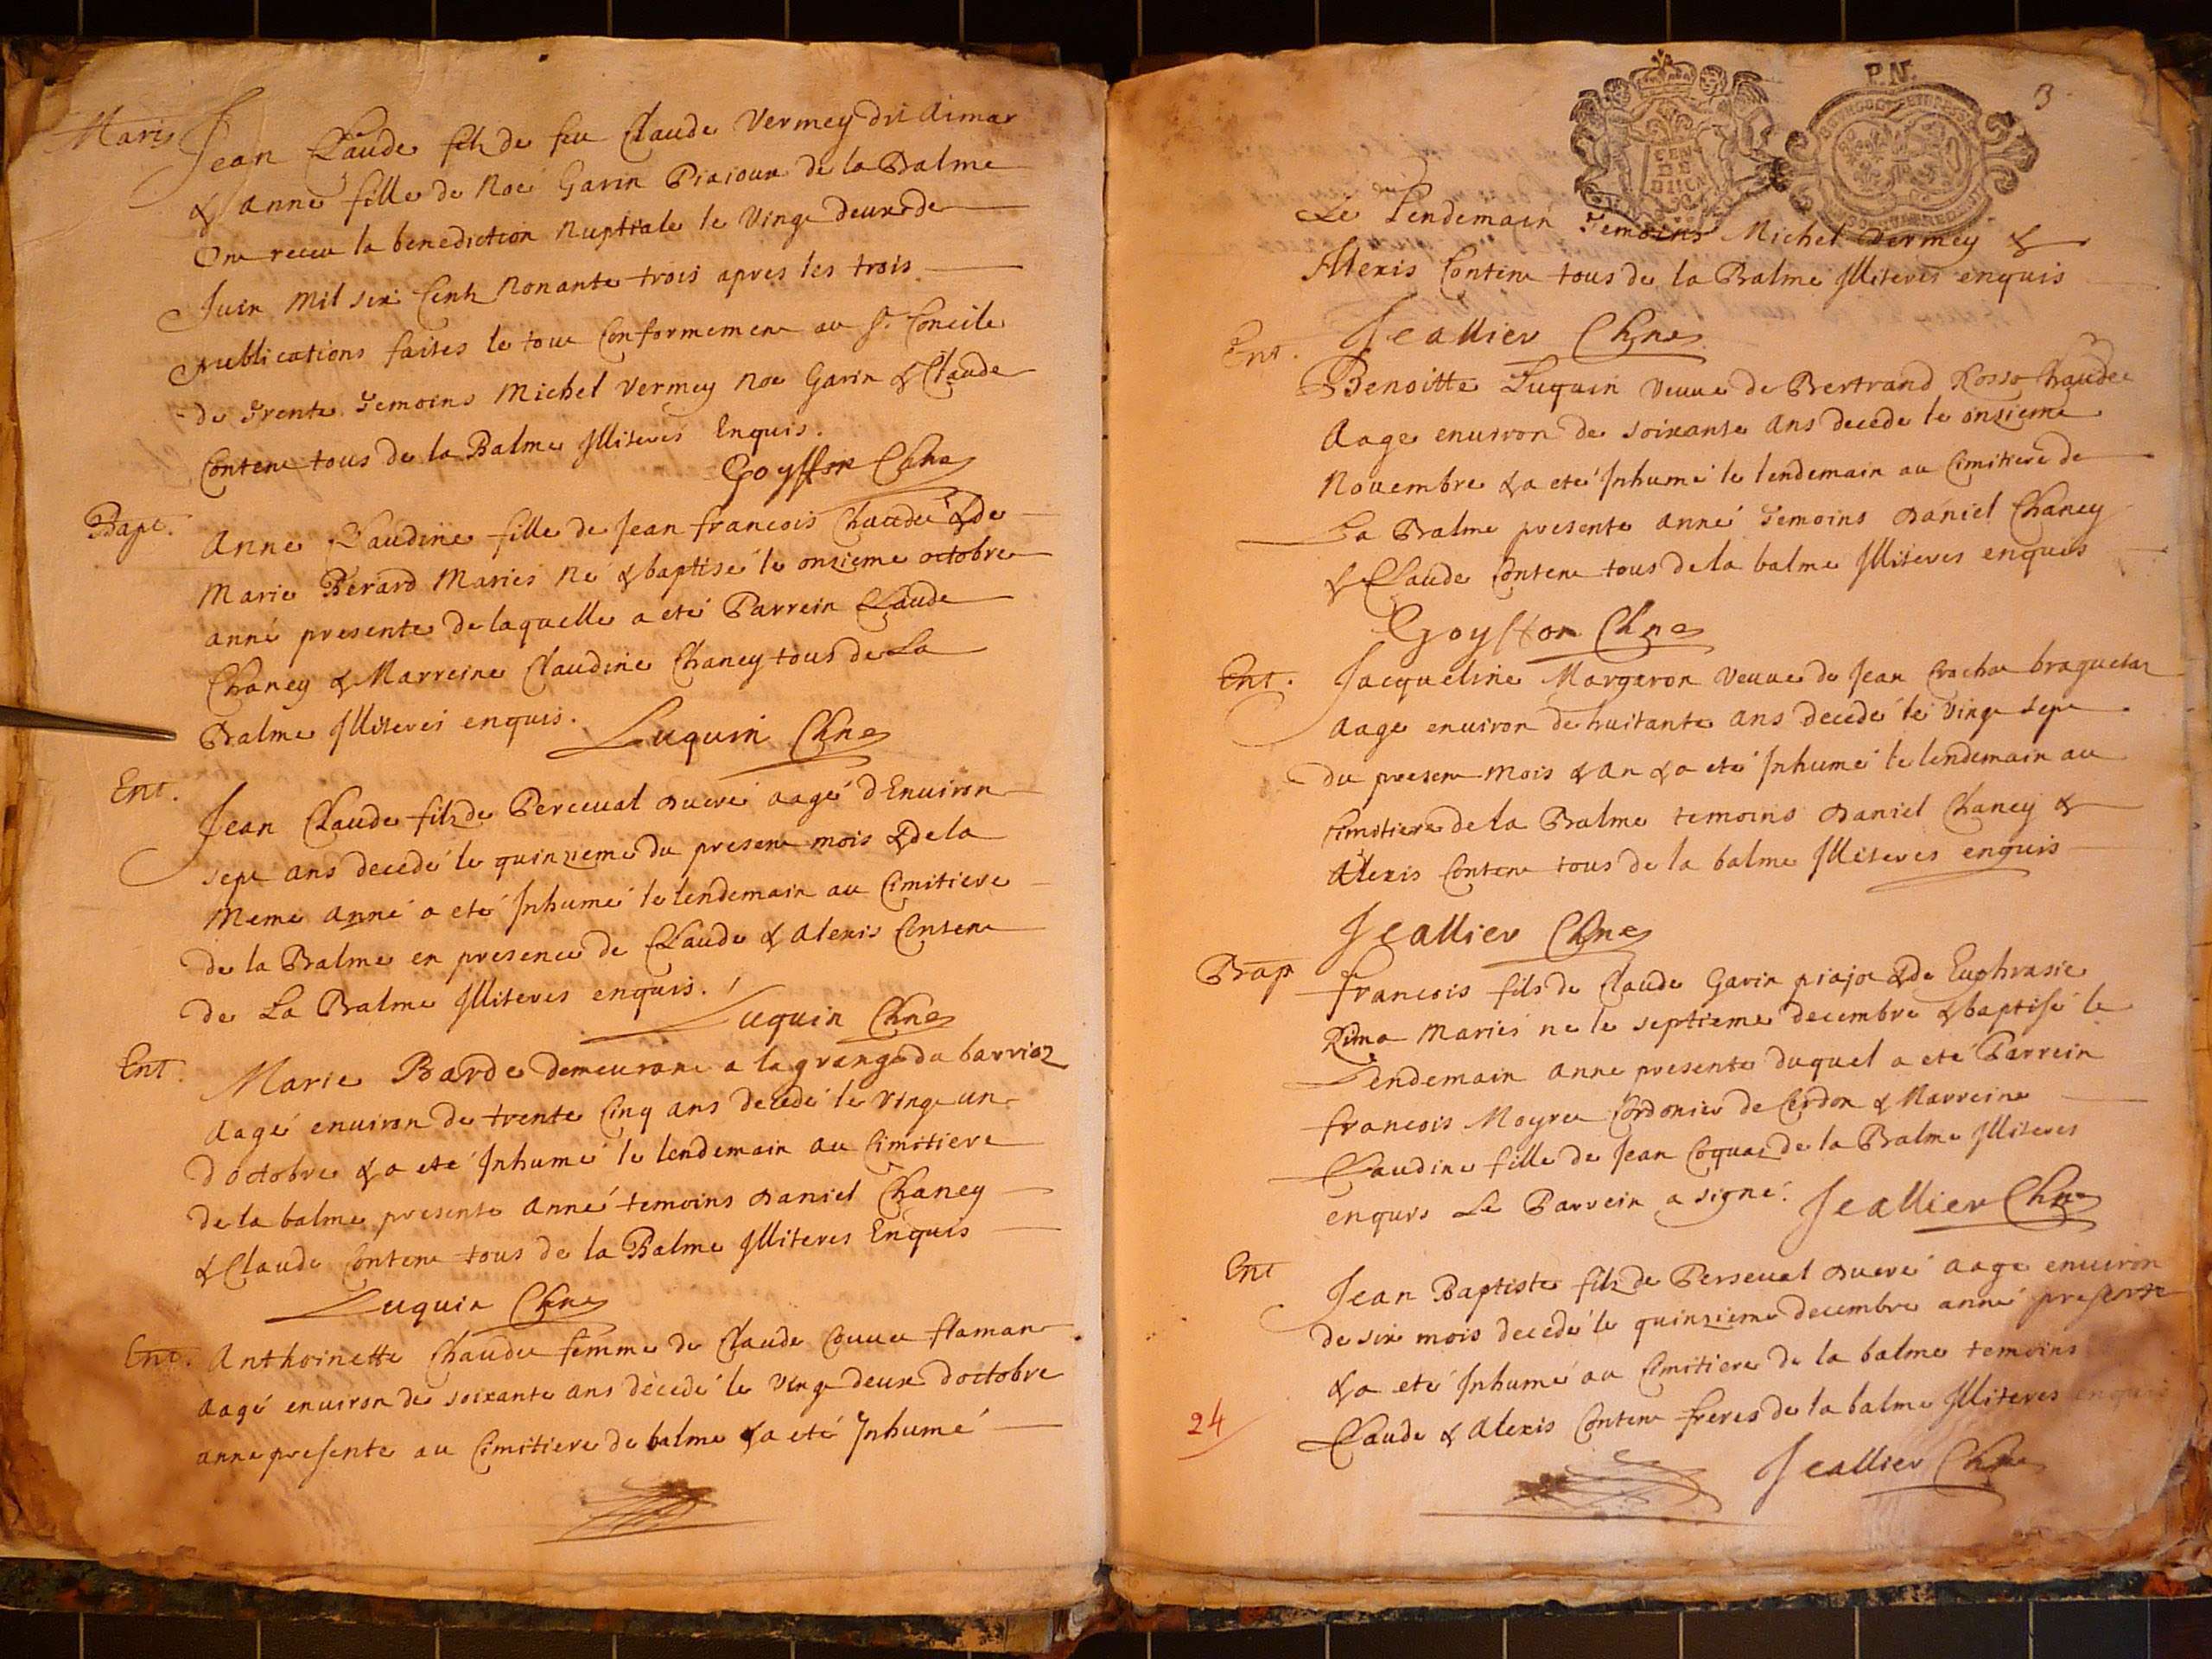 Maris
Jean Claude filz de feu Claude Vermey dit Aimar
& Anne fille de Noé Garin Piajoux de la Balme
Ont receu la benediction Nuptiale le Vingt deux de
Juin Mil six Centz Nonante trois apres les trois
publications faites le tout Conformement au St. Concile
de Trente Temoins Michel Vermey Noé Garin & Claude
Contene tous de la Balme Illiterés Enquis.
Goyffon Chne
Bapt.
Anne Claudine fille de Jean francois Chaudet & de
Marie Berard Mariés Né & baptisé le onzieme octobre
anné presente de laquelle a eté Parrein Claude
Chaney & Marreine Claudine Chaney tous de La
Balme Illiterés enquis.
Luquin Chne
Ent.
Jean Claude filz de Perceval Ducré aagé d'Environ
sept ans decedé le quinzieme du present mois & de la
Meme Anné a eté Inhumé le lendemain au Cimitiere
de la Balme en presence de Claude & Alexis Contene
de La Balme Illiterés enquis.
Luquin Chne
Ent.
Marie Barde demeurant a la grange du barrioz
Aagé environ de trente Cinq ans decedé le Vingt un
D octobre & a eté Inhumé le lendemain au Cimitiere
de la balme presente Anné temoins Daniel Chaney
& Claude Contene tous de la Balme Illiterés Enquis
Luquin Chne
Ent.
Anthoinette Chaudet femme de Claude Couuet flaman
aagé environ de soixante ans décedé le Vingt deux d octobre
anné presente au Cimitiere de balme & a eté Inhumé
P.N.
3
Le Lendemain Temoins Michel Vermey &
Alexis Contene tous de la Balme Illiterés enquis
Jeallier Chne
Ent.
Benoitte Luquin Veuve de Bertrand Rosso Chaudet
Aagé environ de soixante Ans decedé le onzieme
Novembre & a eté Inhumé le lendemain au Cimitiere de
La Balme presente anné Temoins Daniel Chaney
& Claude Contene tous de la balme Illiterés enquis
Goyffon Chne
Ent.
Jacqueline Margaron Veuve de Jean Crochat braguetaz
aagé environ de huitante ans decedé le Vingt Sept
du present mois & An & a eté Inhumé le lendemain au
Cimitiere de la Balme temoins Daniel Chaney &
Alexis Contene tous de la balme Illiterés enquis
Jeallier Chne
Bapt
francois fils de Claude Garin piajot & de Euphrasie
Rima Mariés né le septieme decembre & baptisé le
Lendemain anné presente duquel a eté Parrein
francois Moyret Cordonier de Cerdon & Marreine
Claudine fille de Jean Coquaz de la Balme Illiterés
enquis Le Parrein a signé. Jeallier Chne
Ent
Jean Baptiste filz de Perseval Ducré aagé environ
de six mois decedé le quinzieme decembre anné presente
& a eté Inhumé au Cimitiere de la balme temoins
Claude & Alexis Contene freres de la balme Illiterés enquis
24
Jeallier Chne